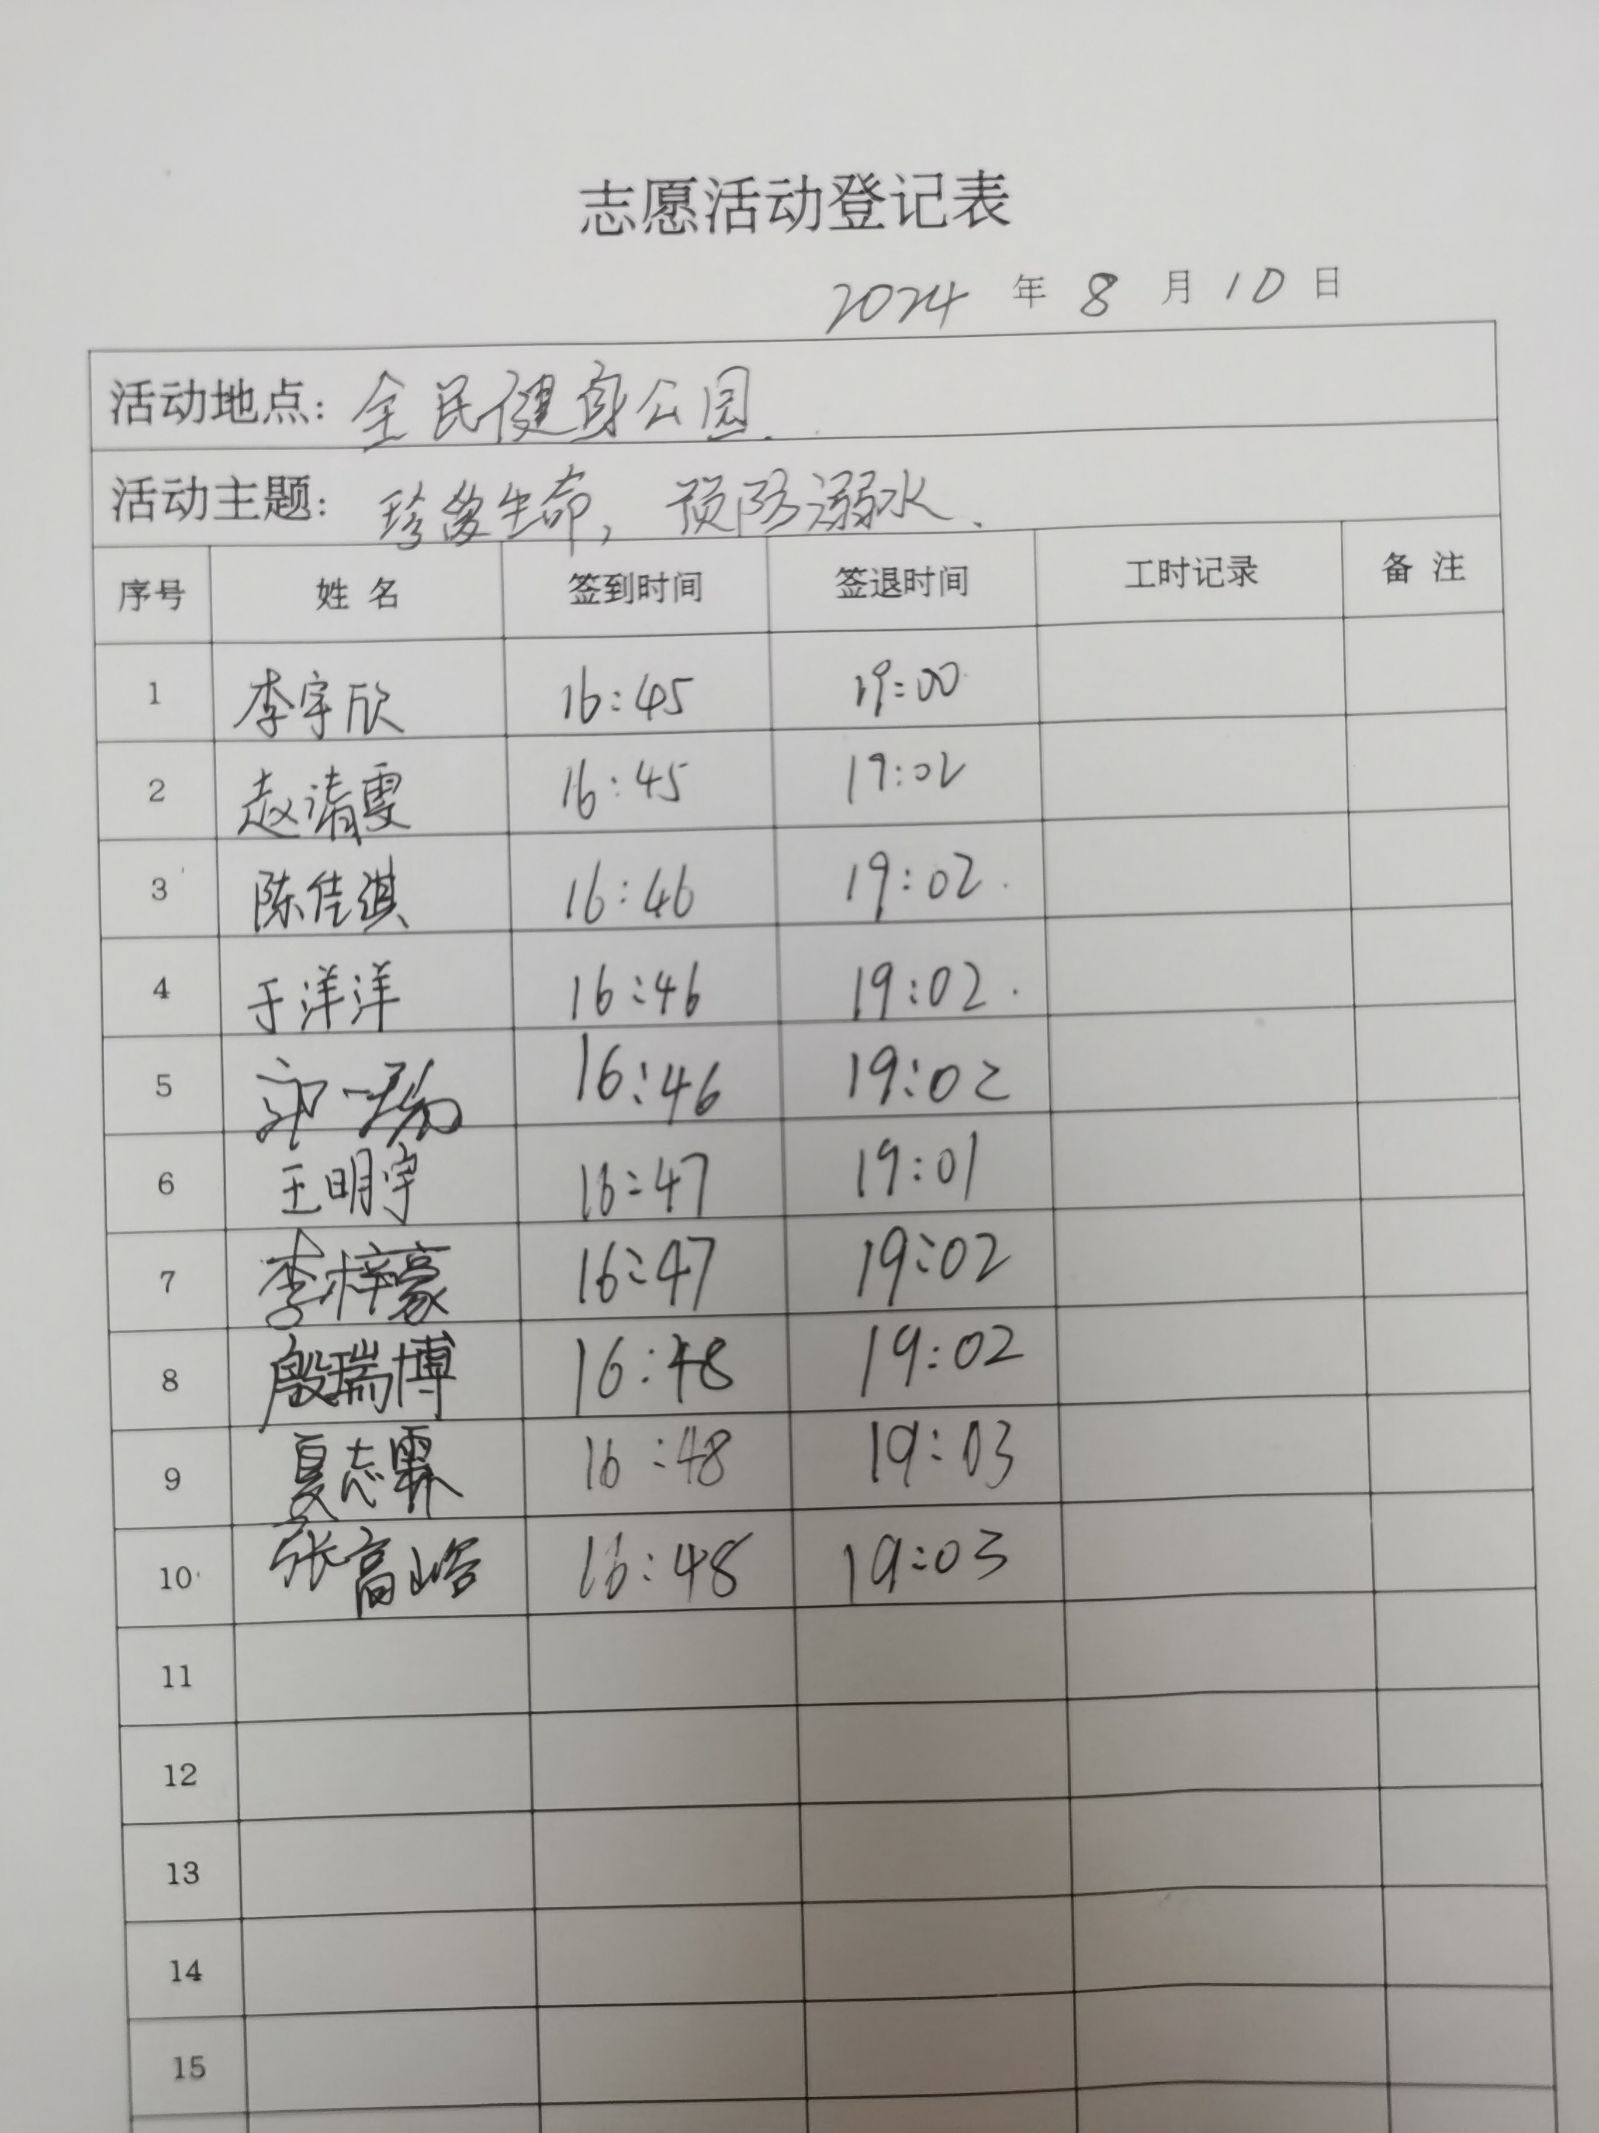 志愿活动登记表
2024 年 8 月 10 日
活动地点: 全民健身公园.
活动主题: 珍爱生命, 预防溺水.
序号 姓名 签到时间 签退时间 工时记录 备注
1 李宇欣 16:45 19:00
2 赵清雯 16:45 19:02
3 陈佳淇 16:46 19:02.
4 于洋洋 16:46 19:02.
5 郭一 16:46 19:02
6 王明宇 16:47 19:01
7 李梓豪 16:47 19:02
8 殷瑞博 16:48 19:02
9 夏志霖 16:48 19:03
10 张高峪 16:48 19:03
11
12
13
14
15